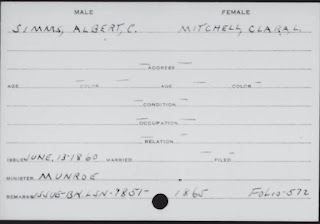 MALE FEMALE
SIMMS, ALBERT, C. MITCHELL, CLARA L.
ADDRESS
AGE COLOR AGE COLOR
CONDITION
OCCUPATION
RELATION
ISSUED JUNE, 13-1860 MARRIED FILED
MINISTER MUNROE
REMARKS ISSUE-BK. LSN-9851- 1865 FOLIO-572